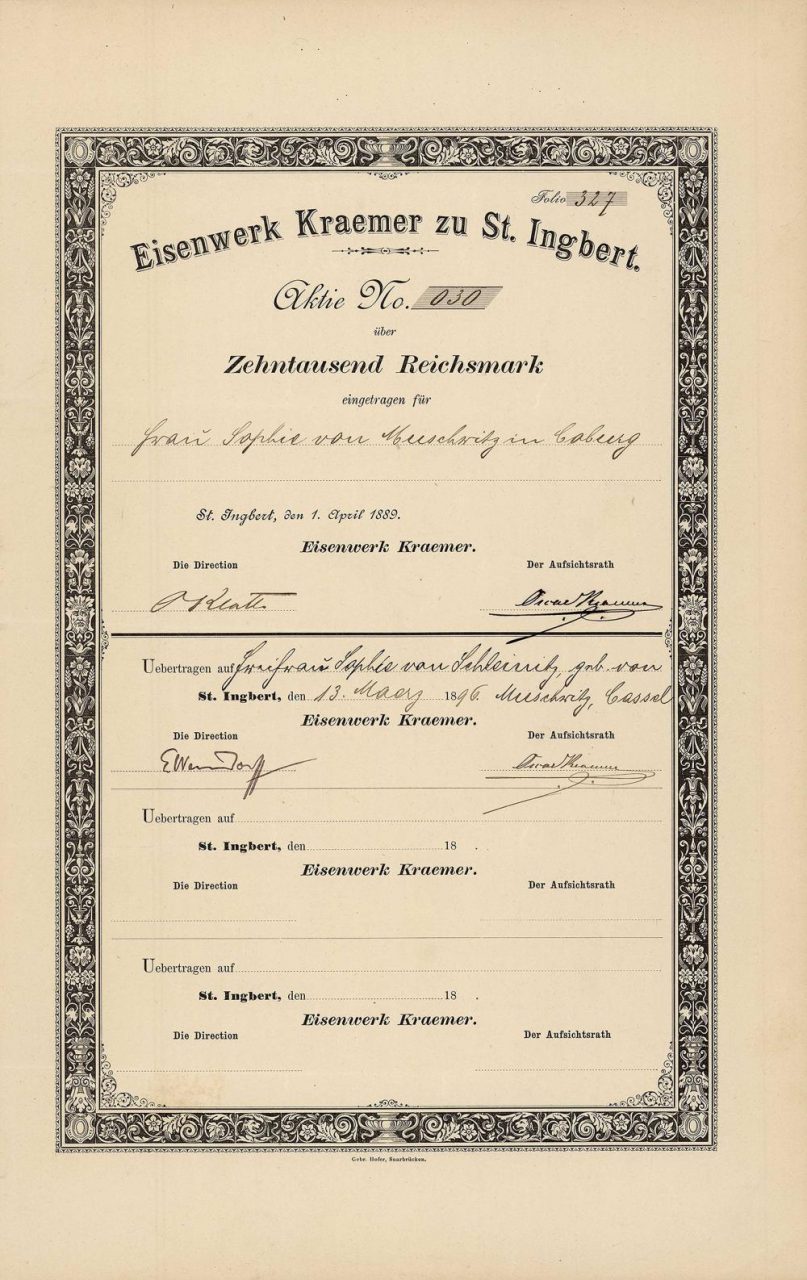 Folio 327
Eisenwerk Kraemer zu St. Ingbert.
Aktie No. 030
über
Zehntausend Reichsmark
eingetragen für
Frau Sophie von Meuschwitz in Coburg
St. Ingbert, den 1. April 1889.
Eisenwerk Kraemer.
Die Direction Der Aufsichtsrath
Oscar Kraemer
Uebertragen auf Freifrau Sophie von Schleinitz, geb. von
St. Ingbert, den 13. Maerz 1896. Meuschwitz, Cassel
Eisenwerk Kraemer.
Die Direction Der Aufsichtsrath
Oscar Kraemer
Uebertragen auf
St. Ingbert, den 18 .
Eisenwerk Kraemer.
Die Direction Der Aufsichtsrath
Uebertragen auf
St. Ingbert, den 18 .
Eisenwerk Kraemer.
Die Direction Der Aufsichtsrath
Gebr. Hofer, Saarbrücken.